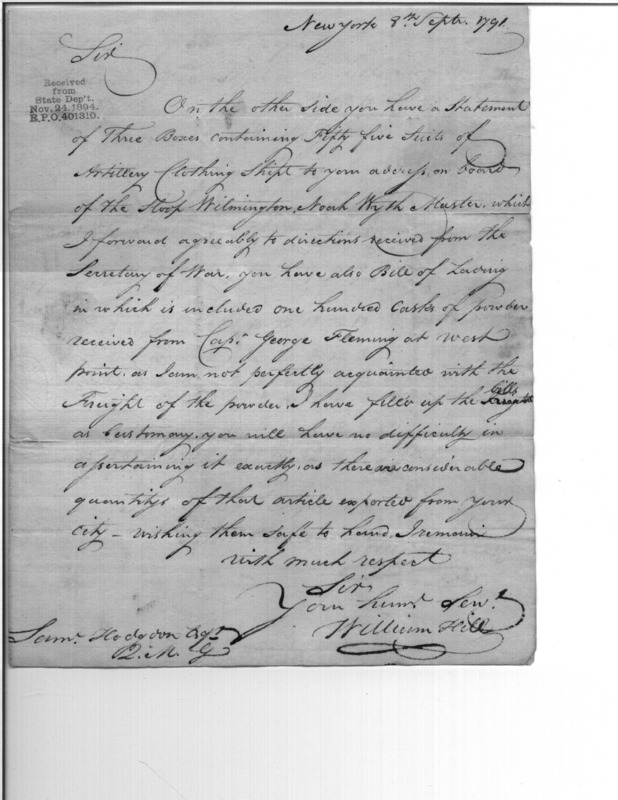 New York 8th Septr. 1791
Sir
Received
from
State Dep't.
Nov. 24. 1894.
R.P.O. 401310.
On the other side you have a Statement
of Three Boxes containing Fifty five Suits of
Artillery Clothing Shipt to your address, on board
of the Sloop Wilmington, Noah Wyth Master, which
I forward agreeably to directions received from the
Secretary of War, you have also Bill of Lading
in which is included one hundred Casks of powder
received from Capn. George Fleming at west
point. as I am not perfectly acquainted with the
Freight of the powder, I have filld up the bills
as Customary. you will have no difficulty in
assertaining it exactly, as there are considerable
quantitys of that article exported from your
City - wishing them safe to hand, I remain
with much respect
Sir
Your huml. Serv.
William Hill
Saml. Hodgdon Esqr.
Q. M. G